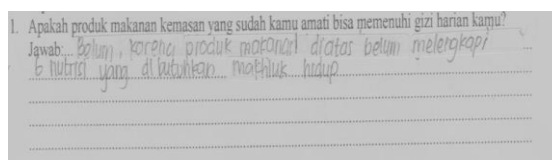 1. Apakah produk makanan kemasan yang sudah kamu amati bisa memenuhi gizi harian kamu?
Jawab:... Belum, karena produk makanan diatas belum melengkapi
6 nutrisi yang dibutuhkan makhluk hidup